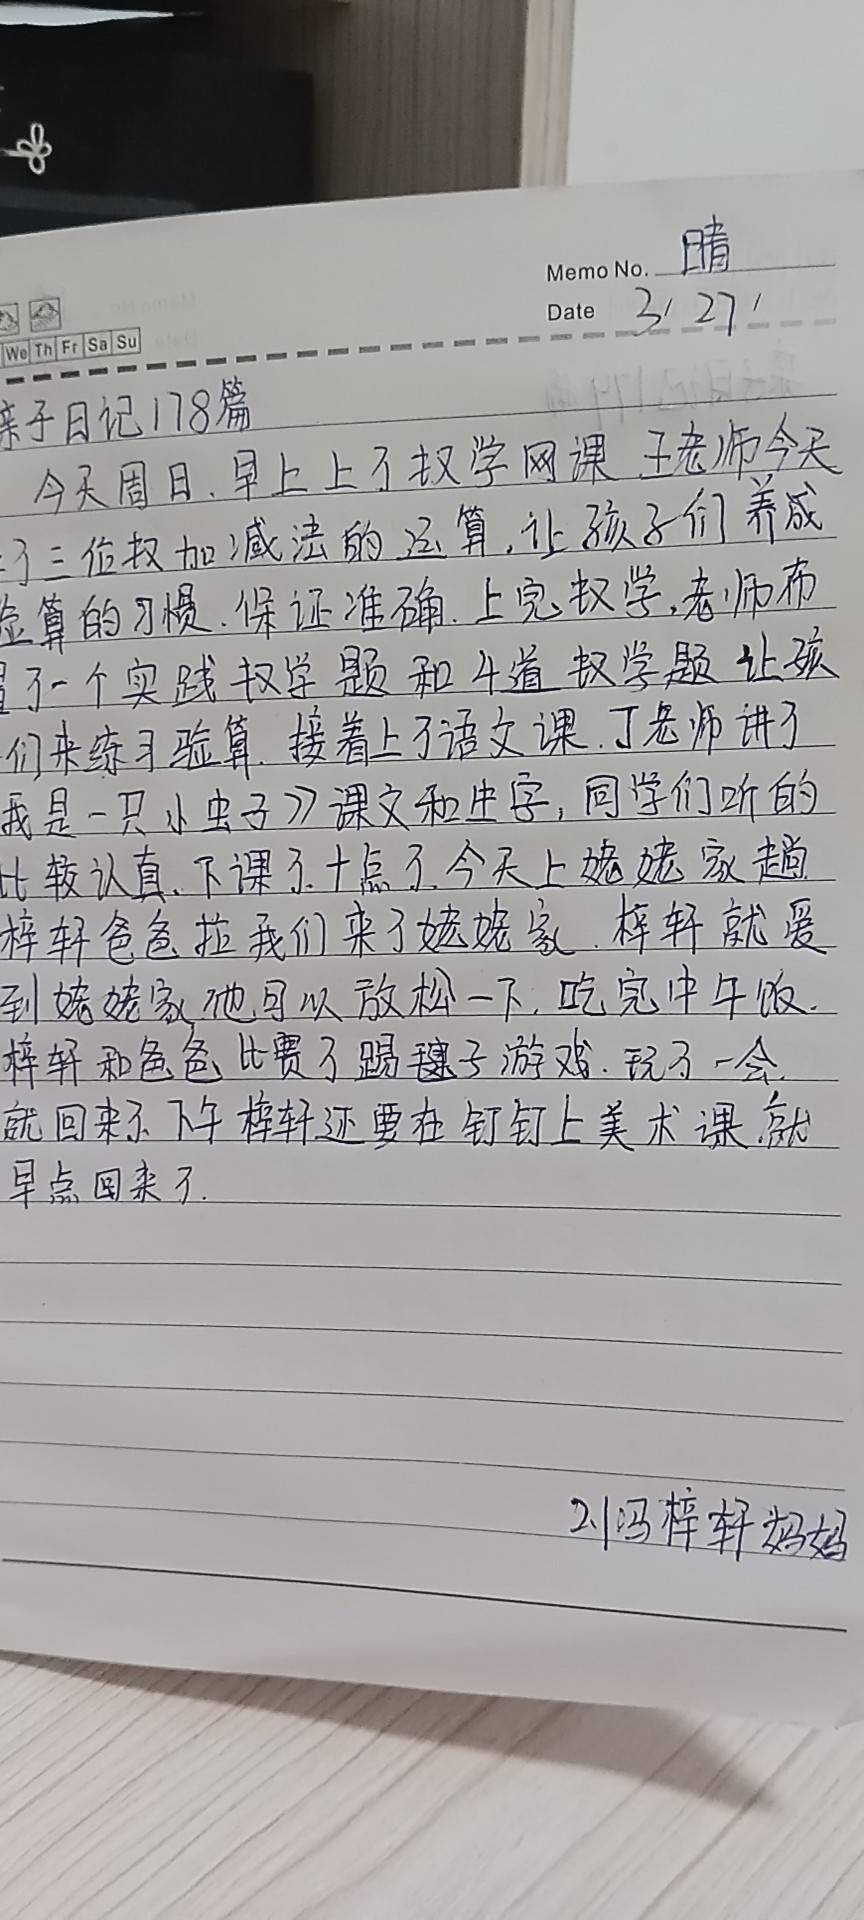 Memo No. 晴
Date 3/27/
We Th Fr Sa Su
亲子日记178篇
今天周日.早上上了数学网课 王老师今天
了三位数加减法的运算,让孩子们养成
验算的习惯.保证准确.上完数学,老师布
置了一个实践数学题和4道数学题让孩
们来练习验算.接着上了语文课.丁老师讲了
我是一只小虫子》课文和生字,同学们听的
比较认真.下课了.十点了.今天上姥姥家趟
梓轩爸爸拉我们来了姥姥家.梓轩就爱
到姥姥家,他可以放松一下.吃完中午饭.
梓轩和爸爸比赛了踢毽子游戏.玩了一会.
就回来了.下午梓轩还要在钉钉上美术课.就
早点回来了.
2.1冯梓轩妈妈